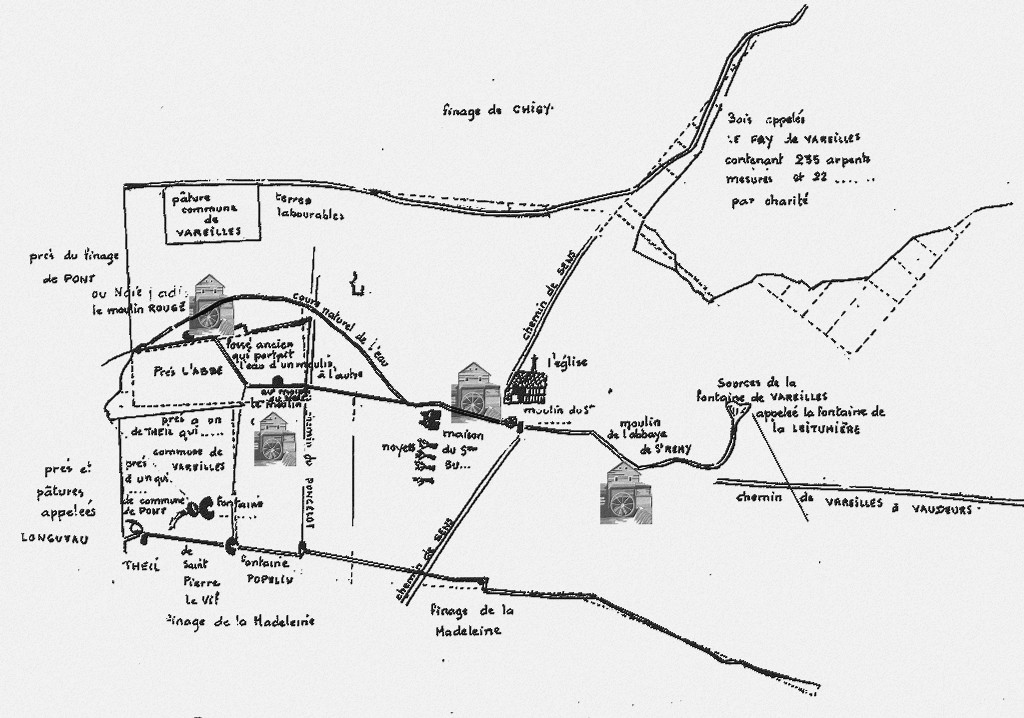 finage de CHIGY
Bois appelés
LE FAY de VAREILLES
contenant 235 arpents
mesurés et 22 ..... ..
par charité
pâture
commune
de
VAREILLES
terres
labourables
près du finage
de PONT
ou
le moulin ROUGE
cours naturel de l'eau
fossé ancien
qui portait
l'eau d'un moulin
à l'autre
Prés L'ABBE
le moulin
chemin de SENS
l'église
moulin du Sr
maison
du Sr
BU...
noyers
moulin
de l'abbaye
de St REMY
Sources de la
fontaine de VAREILLES
appelée la fontaine de
la LEITUMIÈRE
chemin de VAREILLES à VAUDEURS
près a on
de THEIL qui .....
commune de
VAREILLES
près
d un qui.
....
de commune
de PONT
fontaine
chemin du PONCELOT
près et
pâtures
appelées
LONGUEAU
THEIL
de
Saint
Pierre
le Vif
fontaine
POPELIN
finage de la Madeleine
chemin de SENS
finage de la
Madeleine